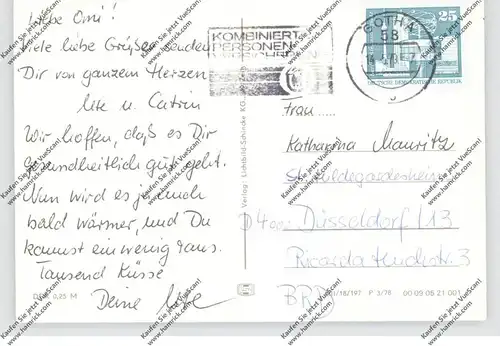 Liebe Omi!
Viele liebe Grüße senden
Dir von ganzem Herzen
Ute u. Catrin
Wir hoffen, daß es Dir
gesundheitlich gut geht.
Nun wird es ja auch
bald wärmer, und Du
kannst ein wenig raus.
Tausend Küsse
Deine Ute
DDR 0,25 M
Verlag: Lichtbild-Schincke KG
KOMBINIERT
PERSONEN
GOTHA
58
25
DEUTSCHE DEMOKRATISCHE REPUBLIK
Frau
Katharina Mauritz
St. Hildegardesheim
D 4000 Düsseldorf/13
Ricarda Huchstr. 3
BRD
/18/197 P 3/78 00 09 05 21 001
Kaufen Sie jetzt VueScan!
www.hamrick.com